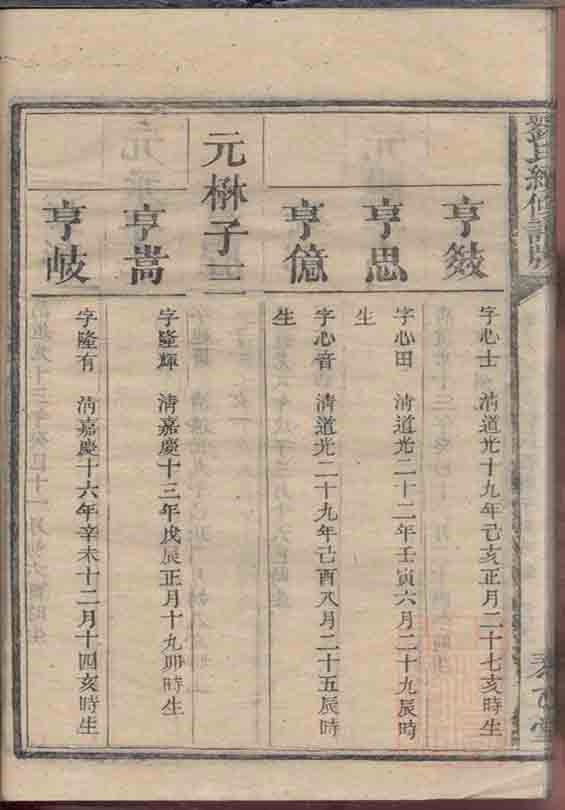 劉氏續修譜牒
亨敥
字心士　清道光十九年己亥正月二十七亥時生
亨思
字心田　清道光二十二年壬寅六月二十九辰時
生
亨億
字心音　清道光二十九年己酉八月二十五辰時
生
元楙子三
亨嵩
字隆輝　清嘉慶十三年戊辰正月十九卯時生
亨岐
字隆有　清嘉慶十六年辛未十二月十四亥時生